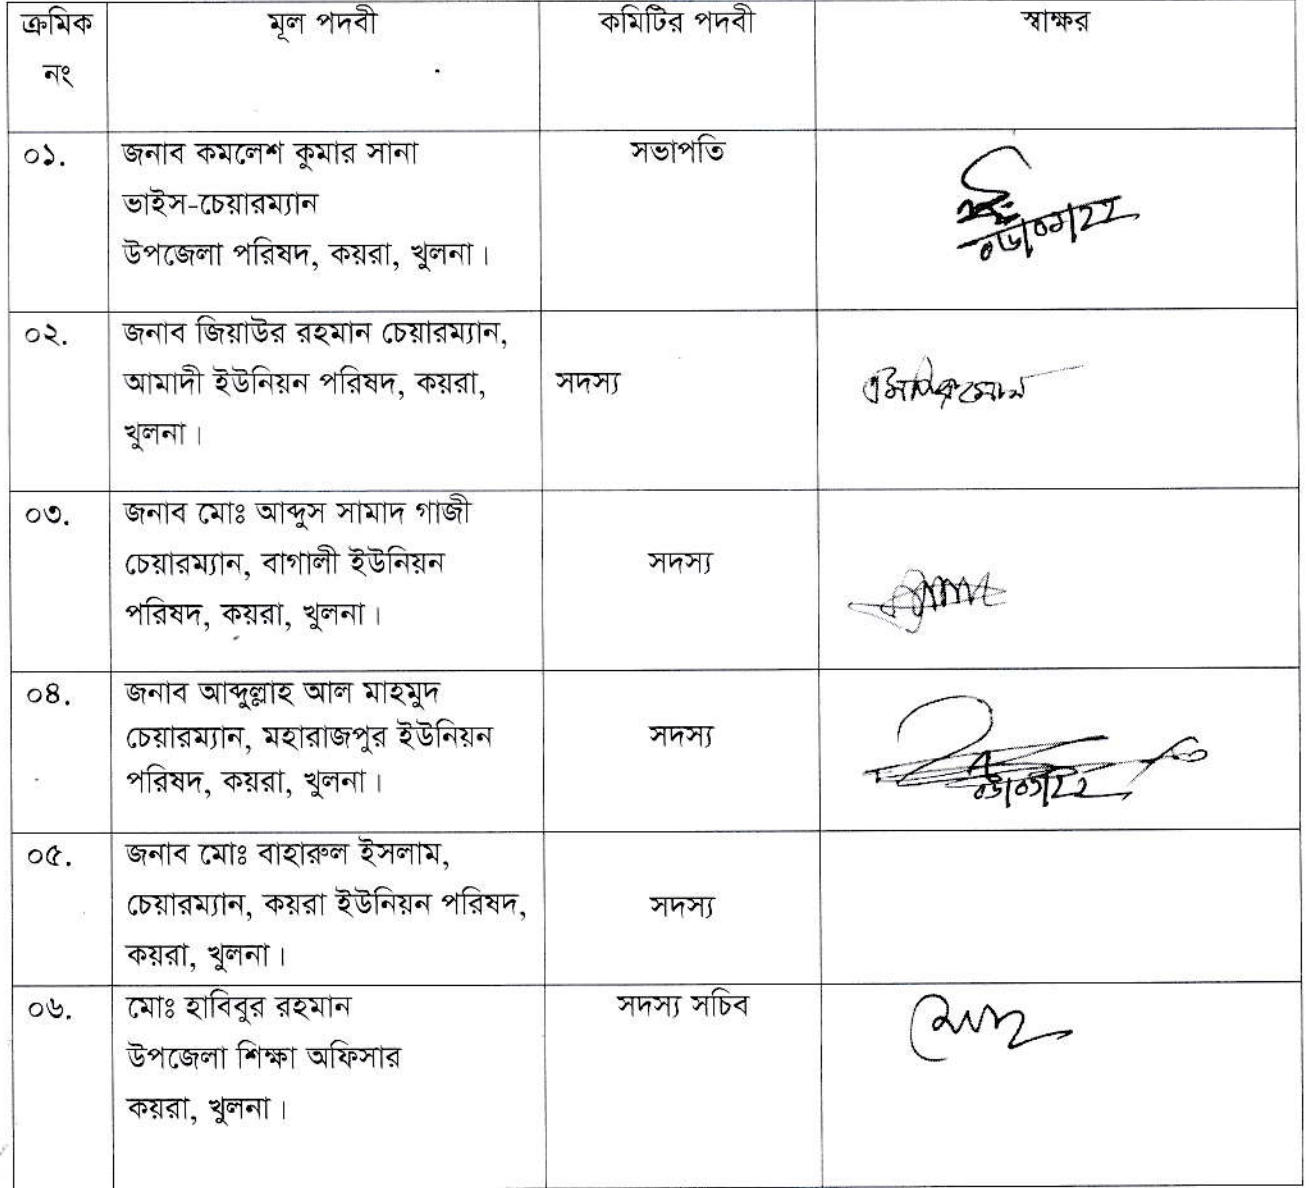 ক্রমিক নং	মূল পদবী	কমিটির পদবী	স্বাক্ষর
০১.	জনাব কমলেশ কুমার সানা	সভাপতি
ভাইস-চেয়ারম্যান
উপজেলা পরিষদ, কয়রা, খুলনা।
০২.	জনাব জিয়াউর রহমান চেয়ারম্যান,
আমাদী ইউনিয়ন পরিষদ, কয়রা,	সদস্য
খুলনা।
০৩.	জনাব মোঃ আব্দুস সামাদ গাজী
চেয়ারম্যান, বাগালী ইউনিয়ন	সদস্য
পরিষদ, কয়রা, খুলনা।
০৪.	জনাব আব্দুল্লাহ আল মাহমুদ
চেয়ারম্যান, মহারাজপুর ইউনিয়ন	সদস্য
পরিষদ, কয়রা, খুলনা।
০৫.	জনাব মোঃ বাহারুল ইসলাম,
চেয়ারম্যান, কয়রা ইউনিয়ন পরিষদ,	সদস্য
কয়রা, খুলনা।
০৬.	মোঃ হাবিবুর রহমান	সদস্য সচিব
উপজেলা শিক্ষা অফিসার
কয়রা, খুলনা।